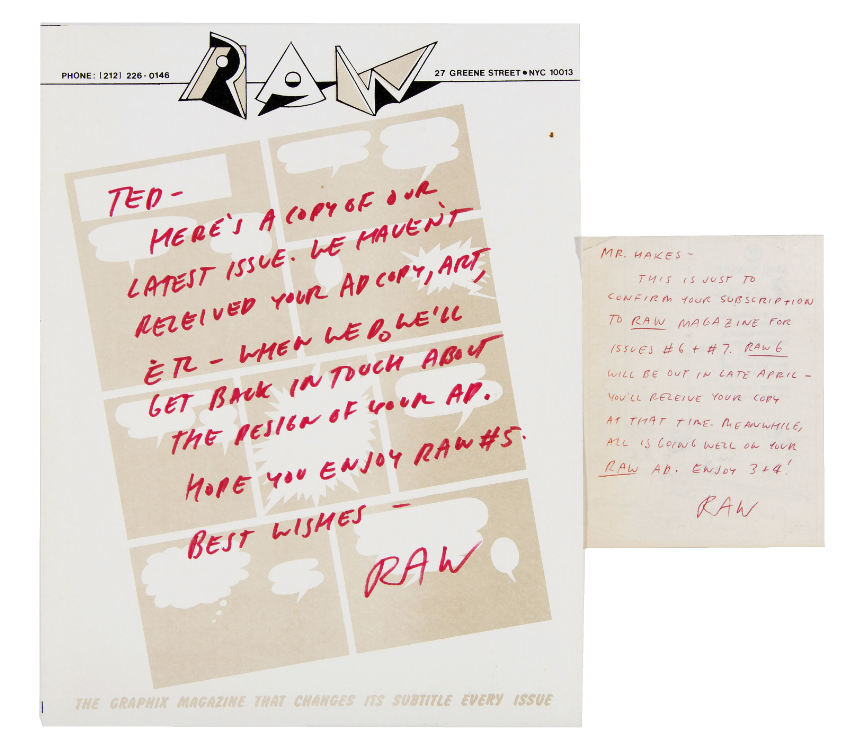 PHONE: (212) 226-0146
RAW
27 GREENE STREET • NYC 10013
TED -
HERE'S A COPY OF OUR
LATEST ISSUE. WE HAVEN'T
RECEIVED YOUR AD COPY, ART,
ETC - WHEN WE DO, WE'LL
GET BACK IN TOUCH ABOUT
THE DESIGN OF YOUR AD.
HOPE YOU ENJOY RAW #5.
BEST WISHES -
RAW
THE GRAPHIX MAGAZINE THAT CHANGES ITS SUBTITLE EVERY ISSUE
MR. HAKES -
THIS IS JUST TO
CONFIRM YOUR SUBSCRIPTION
TO RAW MAGAZINE FOR
ISSUES #6 + #7. RAW 6
WILL BE OUT IN LATE APRIL -
YOU'LL RECEIVE YOUR COPY
AT THAT TIME. MEANWHILE,
ALL IS GOING WELL ON YOUR
RAW AD. ENJOY 3+4!
RAW